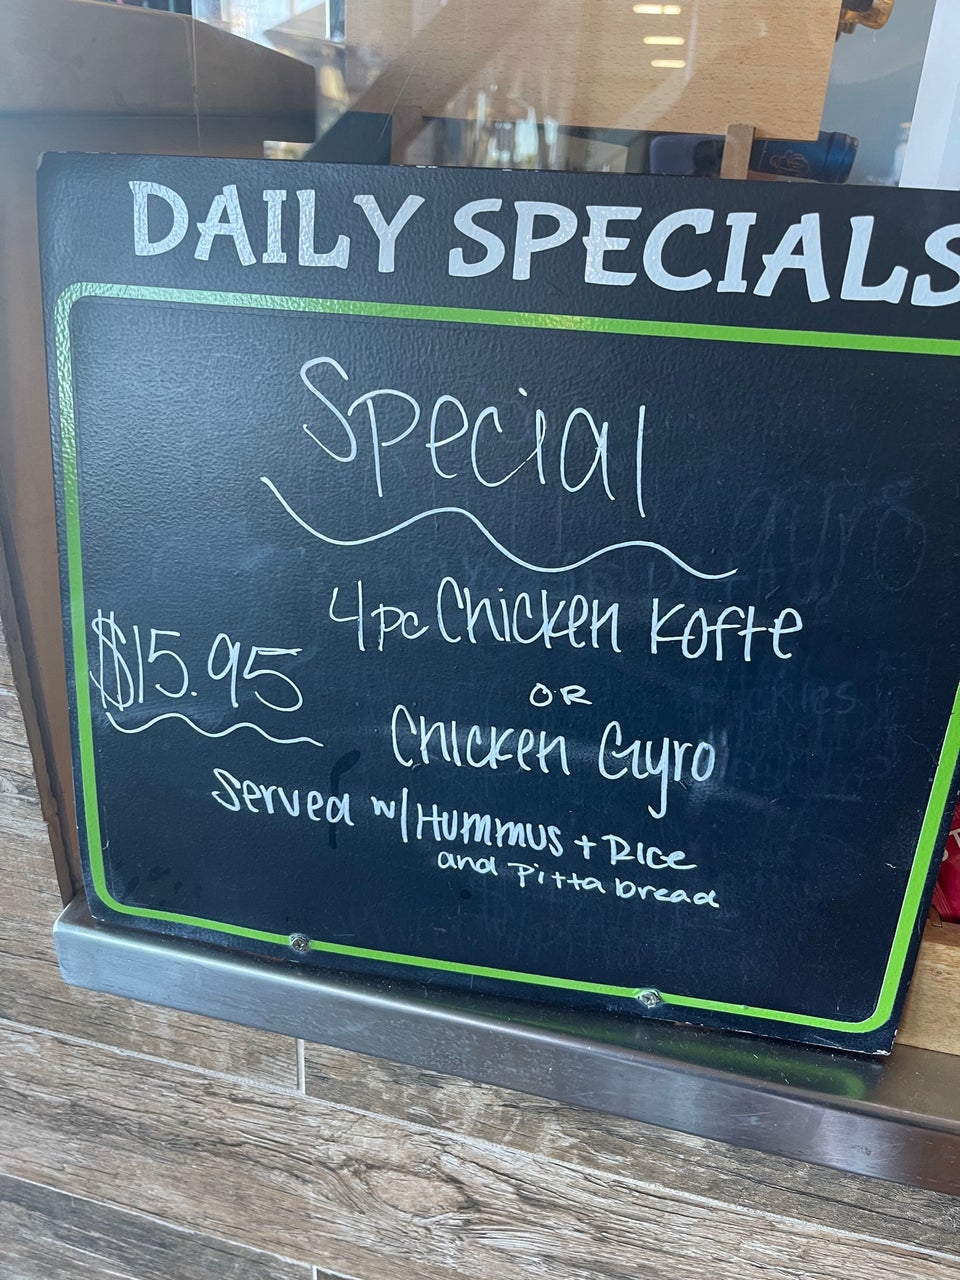 DAILY SPECIALS
Special
4pc Chicken Kofte
$15.95
OR
Chicken Gyro
Served w/ Hummus + Rice
and Pitta bread